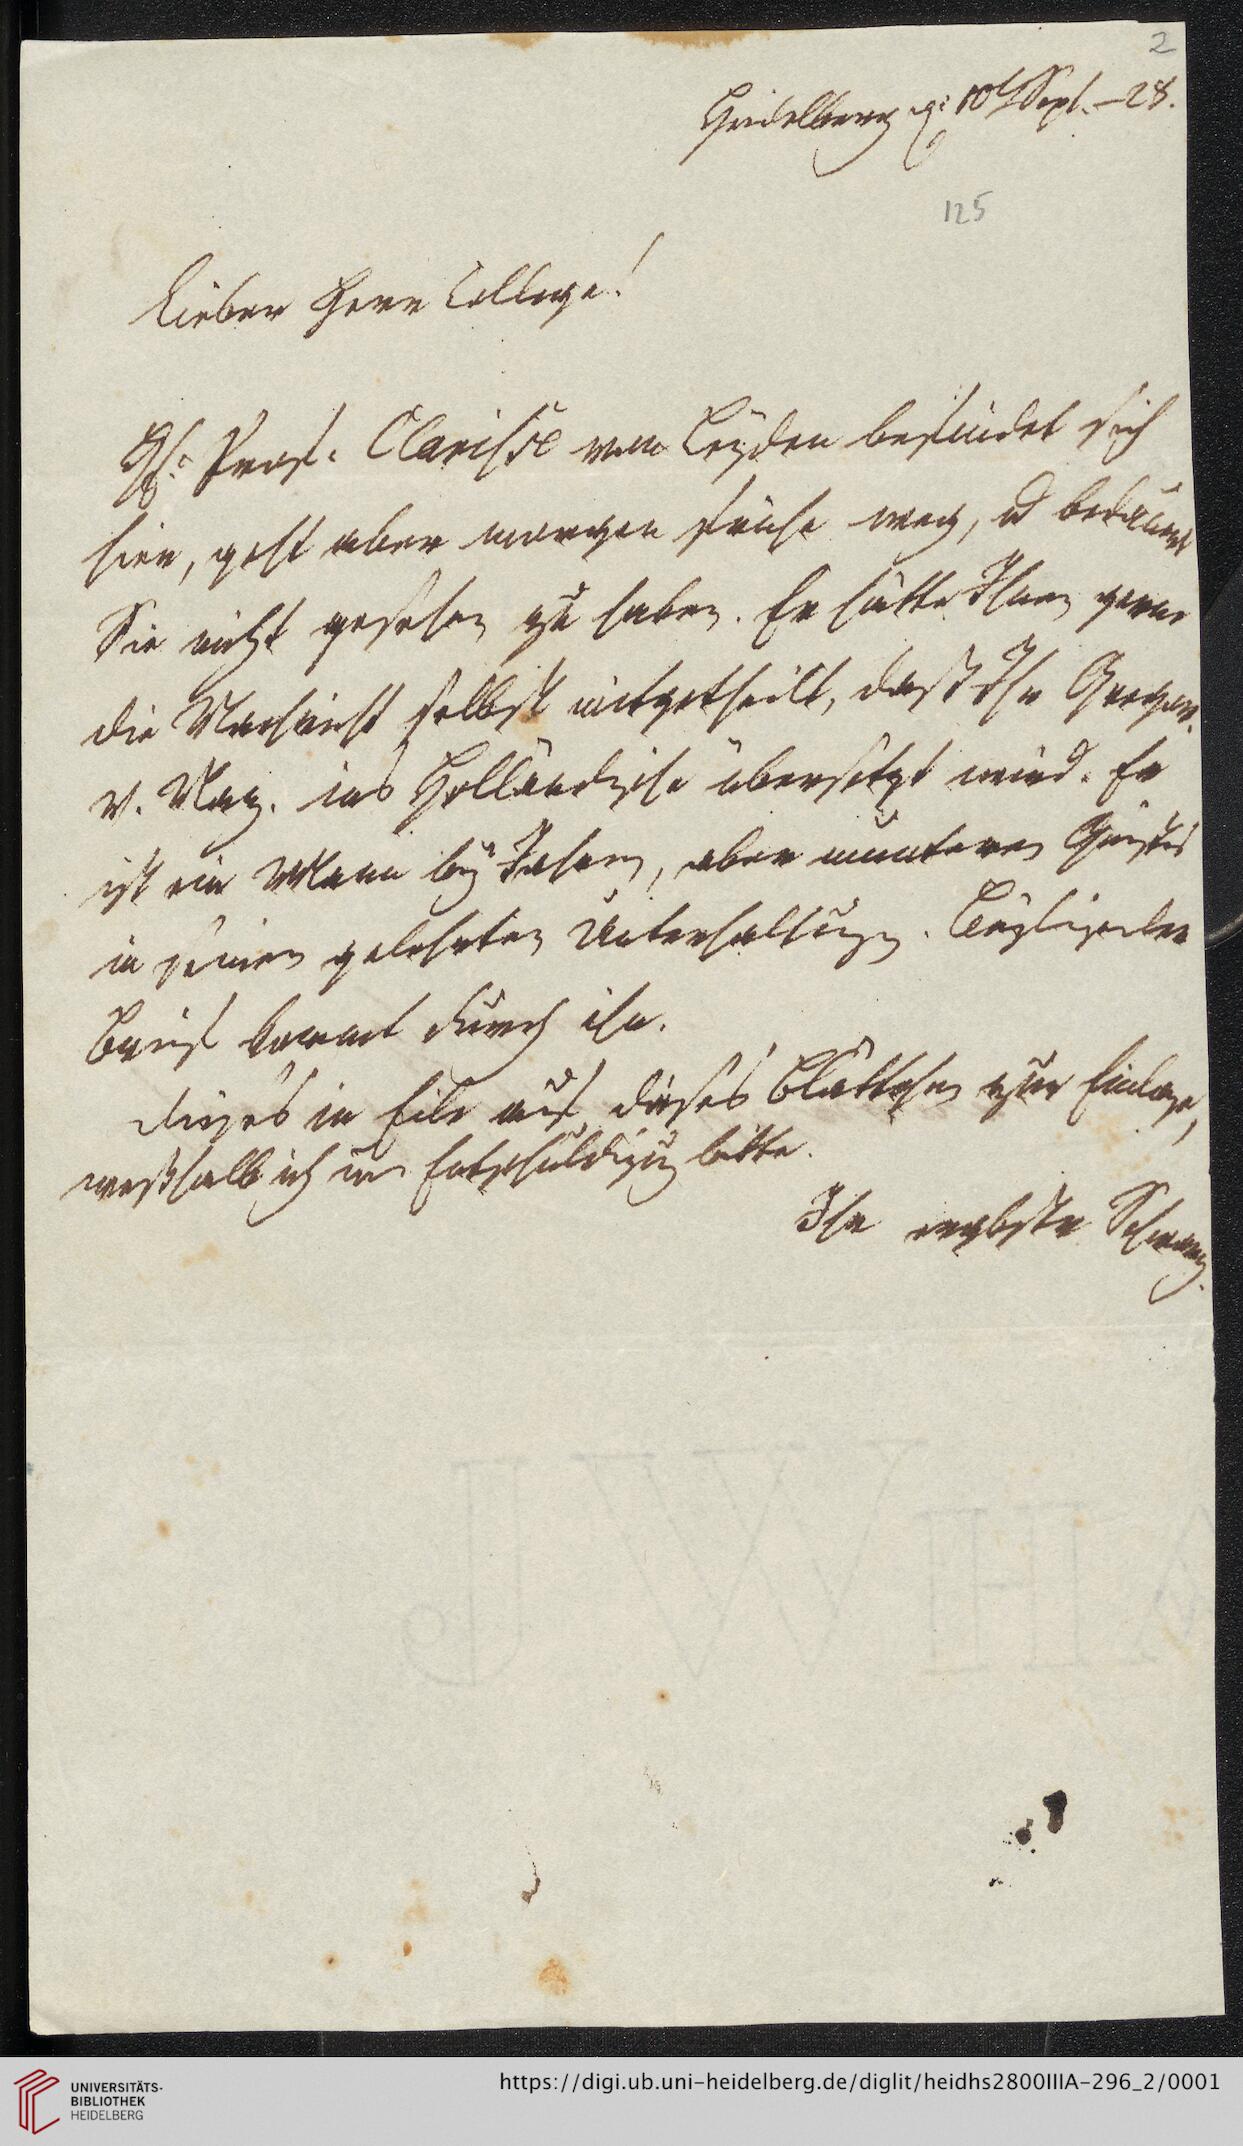 2
Heidelberg d. 10t Sept. –28.
125
Lieber Herr College!
Hr. Prof. Clarisse von Leyden befindet sich
hier, geht aber morgen frühe weg, u bedauert
Sie nicht gesehen zu haben. Er hätte Ihnen gerne
die Nachricht selbst mitgetheilt, daß Ihr Gregor.
v. Naz. ins Holländische übersetzt wird. Er
ist ein Mann bey Jahren, aber munteren Geistes
in seinen gelehrten Unterhaltungen.
Brief kommt durch ihn.
Dieses in Eile auf dieses Blättchen zur Einlage,
weßhalb ich um Entschuldigung bitte.
Ihr ergbste Schwarz.
UNIVERSITÄTS-
BIBLIOTHEK
HEIDELBERG
https://digi.ub.uni-heidelberg.de/diglit/heidhs2800IIIA-296_2/0001